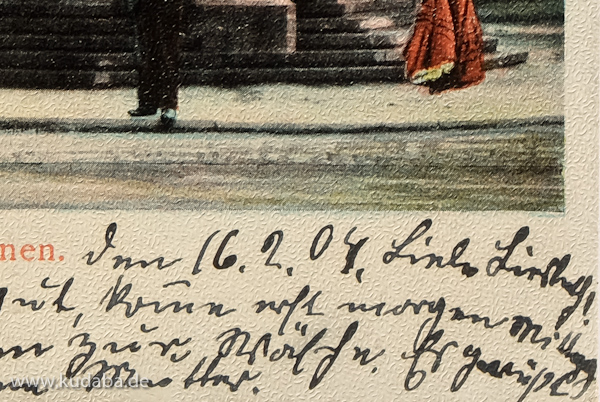 nen. den 16. 2. 04. Liebe
gut, komme erst morgen Mittag
zur Wäsche. Es grüßt
Mutter.
www.kudaba.de